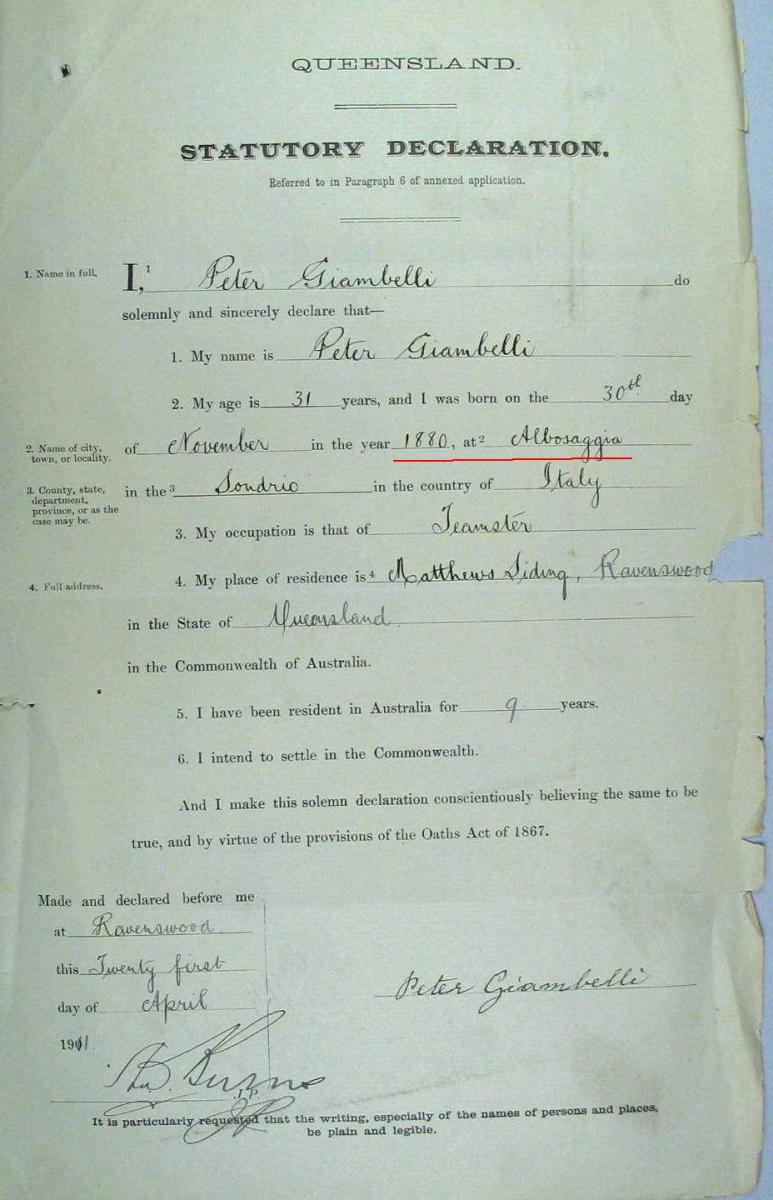 QUEENSLAND.
STATUTORY DECLARATION.
Referred to in Paragraph 6 of annexed application.
1. Name in full.
I,¹ Peter Giambelli do
solemnly and sincerely declare that—
1. My name is Peter Giambelli
2. My age is 31 years, and I was born on the 30th day
2. Name of city, town, or locality.
of November in the year 1880, at² Albosaggia
3. County, state, department, province, or as the case may be.
in the³ Sondrio in the country of Italy
3. My occupation is that of Teamster
4. Full address.
4. My place of residence is⁴ Matthews Siding, Ravenswood
in the State of Queensland
in the Commonwealth of Australia.
5. I have been resident in Australia for 9 years.
6. I intend to settle in the Commonwealth.
And I make this solemn declaration conscientiously believing the same to be
true, and by virtue of the provisions of the Oaths Act of 1867.
Made and declared before me
at Ravenswood
this Twenty first
day of April
1911.
Peter Giambelli
Burns
J.P.
It is particularly requested that the writing, especially of the names of persons and places,
be plain and legible.